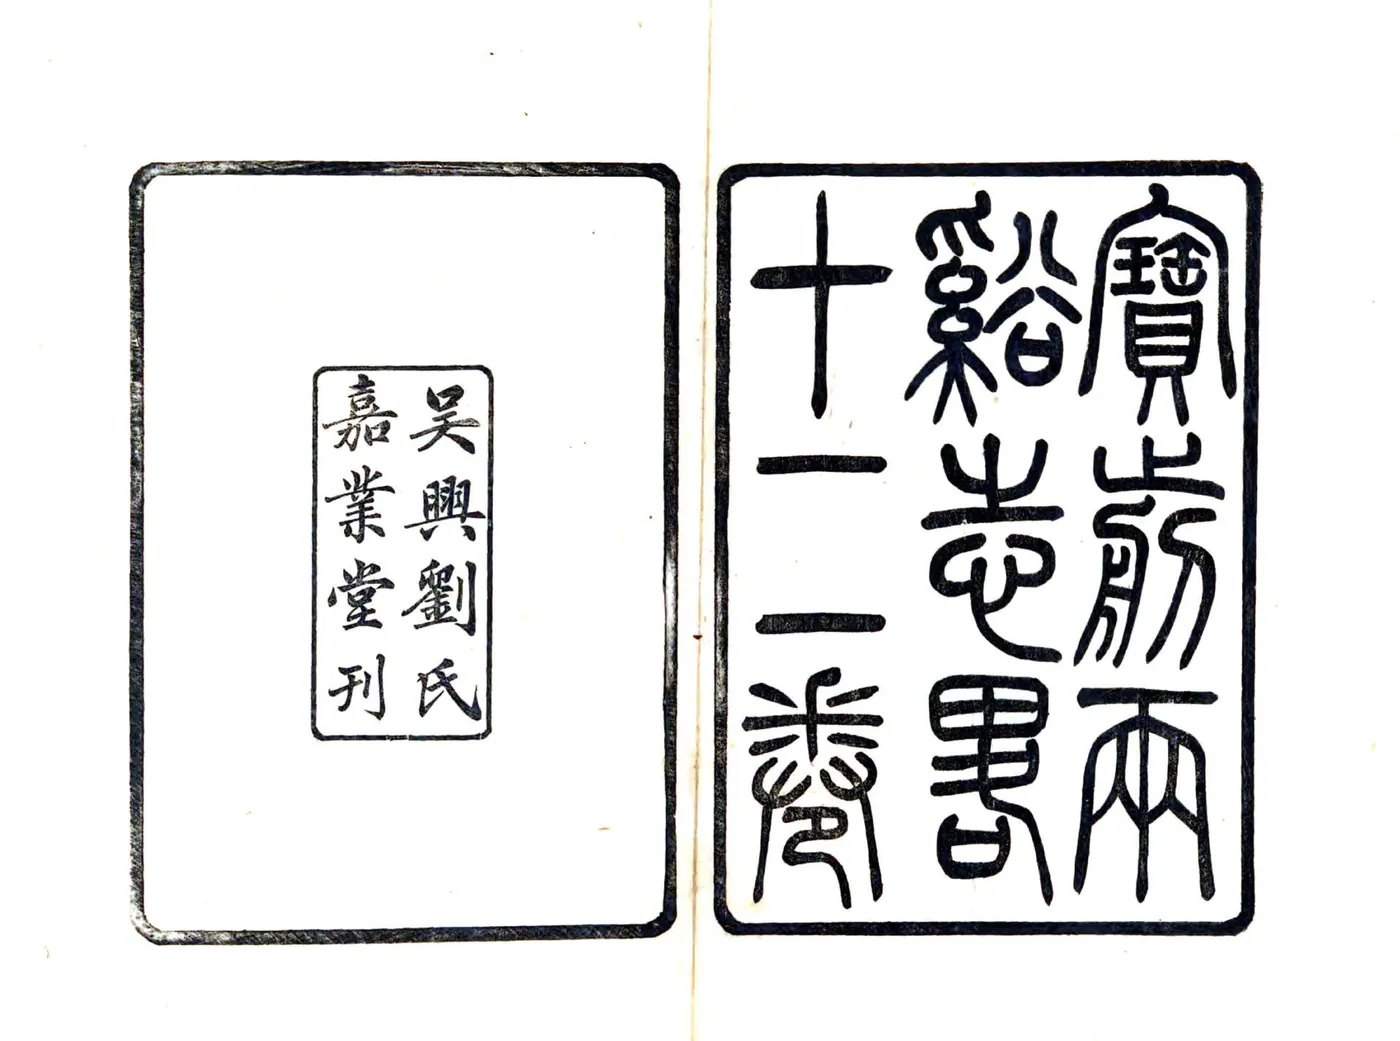 寶前兩
谿志畧
十二卷
吳興劉氏
嘉業堂刊